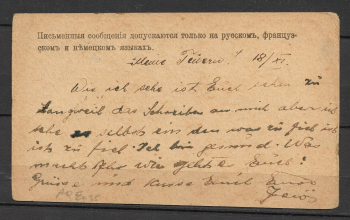 Письменныя сообщенія допускаются только на русскомъ, француз-
скомъ и нѣмецкомъ языкахъ.
Meine Teuern! 18/XI.
Wie ich sehe ist Euch schon zu
langweil das Schreiben an mich aber ich
sehe es selbst ein den was zu fiel ist
ist zu fiel. Ich bin gesund. Was
macht Ihr wie geht es Euch?
Grüsse und Küsse Euch Euer